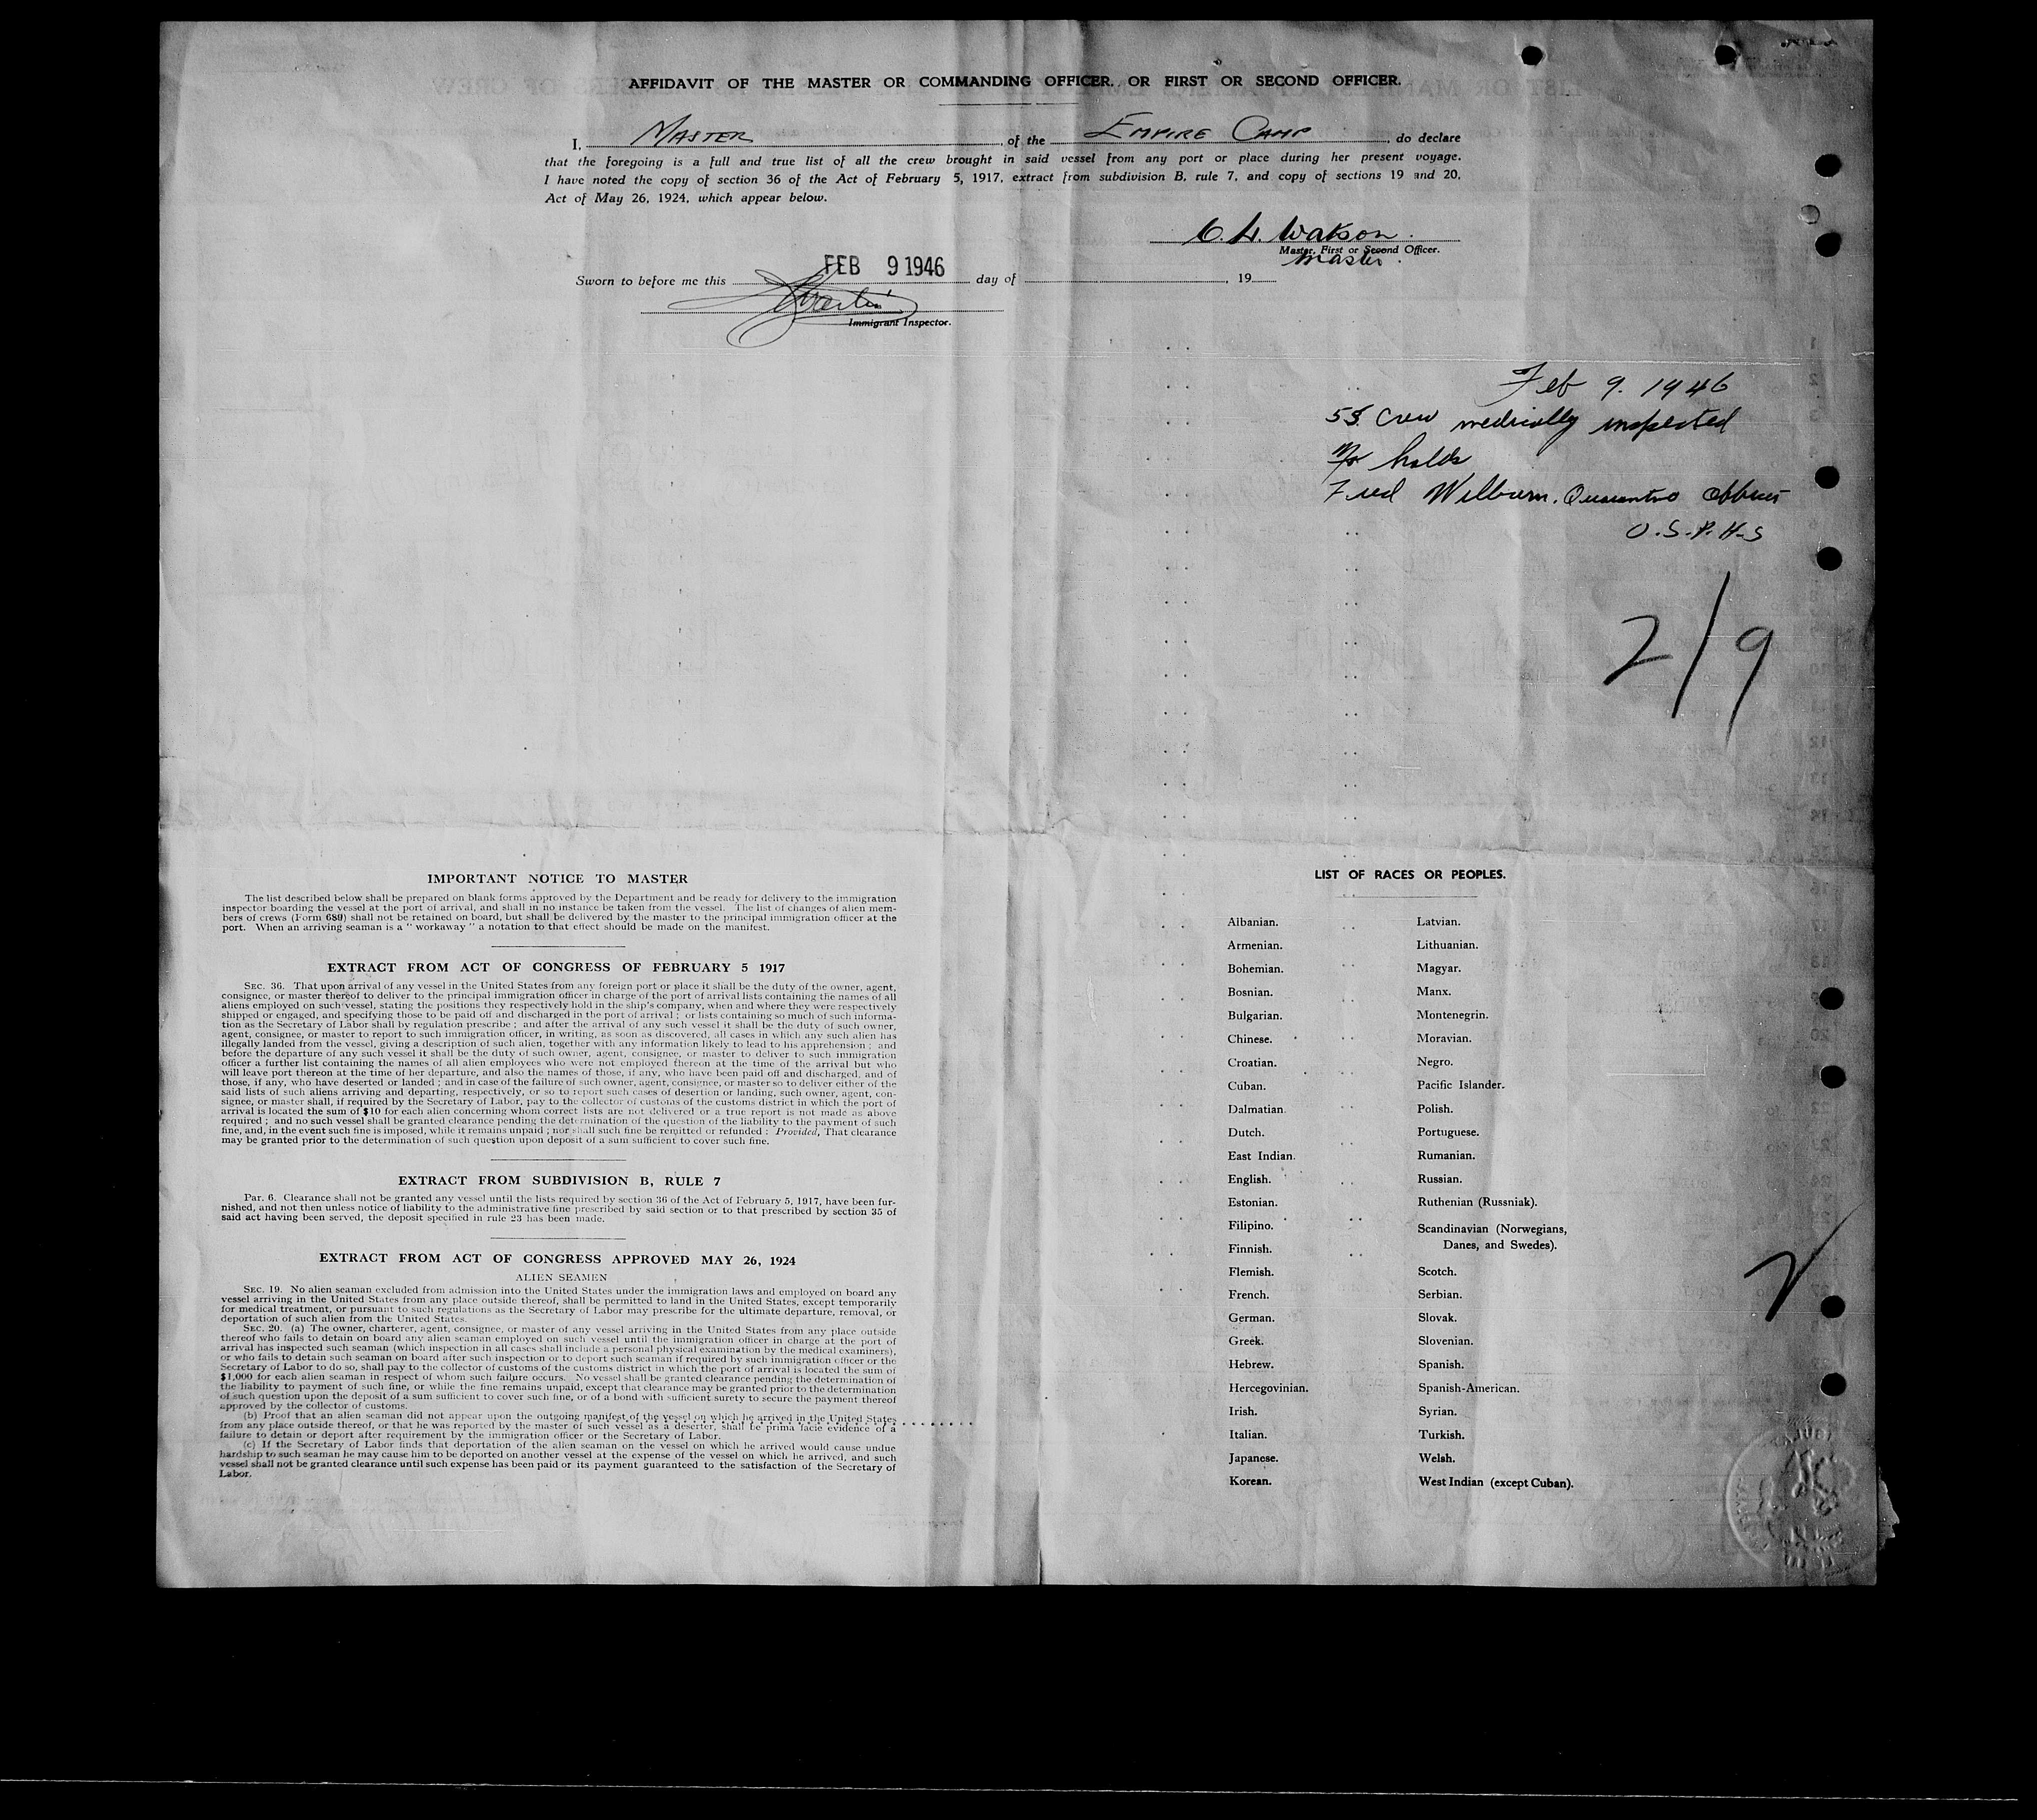 AFFIDAVIT OF THE MASTER OR COMMANDING OFFICER, OR FIRST OR SECOND OFFICER.
I, MASTER, of the EMPIRE CAMP, do declare
that the foregoing is a full and true list of all the crew brought in said vessel from any port or place during her present voyage.
I have noted the copy of section 36 of the Act of February 5, 1917, extract from subdivision B, rule 7, and copy of sections 19 and 20,
Act of May 26, 1924, which appear below.
Watson.
Master, First or Second Officer.
Master.
FEB 9 1946
Sworn to before me this day of , 19
Immigrant Inspector.
Feb 9. 1946
Crew medically inspected
No holds
Fred Wilburn. Officer
U.S.P.H.S
2/9
IMPORTANT NOTICE TO MASTER
The list described below shall be prepared on blank forms approved by the Department and be ready for delivery to the immigration
inspector boarding the vessel at the port of arrival, and shall in no instance be taken from the vessel. The list of changes of alien mem-
bers of crews (Form 689) shall not be retained on board, but shall be delivered by the master to the principal immigration officer at the
port. When an arriving seaman is a "workaway" a notation to that effect should be made on the manifest.
EXTRACT FROM ACT OF CONGRESS OF FEBRUARY 5 1917
SEC. 36. That upon arrival of any vessel in the United States from any foreign port or place it shall be the duty of the owner, agent,
consignee, or master thereof to deliver to the principal immigration officer in charge of the port of arrival lists containing the names of all
aliens employed on such vessel, stating the positions they respectively hold in the ship's company, when and where they were respectively
shipped or engaged, and specifying those to be paid off and discharged in the port of arrival; or lists containing so much of such informa-
tion as the Secretary of Labor shall by regulation prescribe; and after the arrival of any such vessel it shall be the duty of such owner,
agent, consignee, or master to report to such immigration officer, in writing, as soon as discovered, all cases in which any such alien has
illegally landed from the vessel, giving a description of such alien, together with any information likely to lead to his apprehension; and
before the departure of any such vessel it shall be the duty of such owner, agent, consignee, or master to deliver to such immigration
officer a further list containing the names of all alien employees who were not employed thereon at the time of the arrival but who
will leave port thereon at the time of her departure, and also the names of those, if any, who have been paid off and discharged, and of
those, if any, who have deserted or landed; and in case of the failure of such owner, agent, consignee, or master so to deliver either of the
said lists of such aliens arriving and departing, respectively, or so to report such cases of desertion or landing, such owner, agent, con-
signee, or master shall, if required by the Secretary of Labor, pay to the collector of customs of the customs district in which the port of
arrival is located the sum of $10 for each alien concerning whom correct lists are not delivered or a true report is not made as above
required; and no such vessel shall be granted clearance pending the determination of the question of the liability to the payment of such
fine, and, in the event such fine is imposed, while it remains unpaid; nor shall such fine be remitted or refunded: Provided, That clearance
may be granted prior to the determination of such question upon deposit of a sum sufficient to cover such fine.
EXTRACT FROM SUBDIVISION B, RULE 7
Par. 6. Clearance shall not be granted any vessel until the lists required by section 36 of the Act of February 5, 1917, have been fur-
nished, and not then unless notice of liability to the administrative fine prescribed by said section or to that prescribed by section 35 of
said act having been served, the deposit specified in rule 23 has been made.
EXTRACT FROM ACT OF CONGRESS APPROVED MAY 26, 1924
ALIEN SEAMEN
SEC. 19. No alien seaman excluded from admission into the United States under the immigration laws and employed on board any
vessel arriving in the United States from any place outside thereof, shall be permitted to land in the United States, except temporarily
for medical treatment, or pursuant to such regulations as the Secretary of Labor may prescribe for the ultimate departure, removal, or
deportation of such alien from the United States.
SEC. 20. (a) The owner, charterer, agent, consignee, or master of any vessel arriving in the United States from any place outside
thereof who fails to detain on board any alien seaman employed on such vessel until the immigration officer in charge at the port of
arrival has inspected such seaman (which inspection in all cases shall include a personal physical examination by the medical examiners),
or who fails to detain such seaman on board after such inspection or to deport such seaman if required by such immigration officer or the
Secretary of Labor to do so, shall pay to the collector of customs of the customs district in which the port of arrival is located the sum of
$1,000 for each alien seaman in respect of whom such failure occurs. No vessel shall be granted clearance pending the determination of
the liability to payment of such fine, or while the fine remains unpaid, except that clearance may be granted prior to the determination
of such question upon the deposit of a sum sufficient to cover such fine, or of a bond with sufficient surety to secure the payment thereof
approved by the collector of customs.
(b) Proof that an alien seaman did not appear upon the outgoing manifest of the vessel on which he arrived in the United States
from any place outside thereof, or that he was reported by the master of such vessel as a deserter, shall be prima facie evidence of a
failure to detain or deport after requirement by the immigration officer or the Secretary of Labor.
(c) If the Secretary of Labor finds that deportation of the alien seaman on the vessel on which he arrived would cause undue
hardship to such seaman he may cause him to be deported on another vessel at the expense of the vessel on which he arrived, and such
vessel shall not be granted clearance until such expense has been paid or its payment guaranteed to the satisfaction of the Secretary of
Labor.
LIST OF RACES OR PEOPLES.
Albanian.
Armenian.
Bohemian.
Bosnian.
Bulgarian.
Chinese.
Croatian.
Cuban.
Dalmatian.
Dutch.
East Indian.
English.
Estonian.
Filipino.
Finnish.
Flemish.
French.
German.
Greek.
Hebrew.
Hercegovinian.
Irish.
Italian.
Japanese.
Korean.
Latvian.
Lithuanian.
Magyar.
Manx.
Montenegrin.
Moravian.
Negro.
Pacific Islander.
Polish.
Portuguese.
Rumanian.
Russian.
Ruthenian (Russniak).
Scandinavian (Norwegians,
Danes, and Swedes).
Scotch.
Serbian.
Slovak.
Slovenian.
Spanish.
Spanish-American.
Syrian.
Turkish.
Welsh.
West Indian (except Cuban).